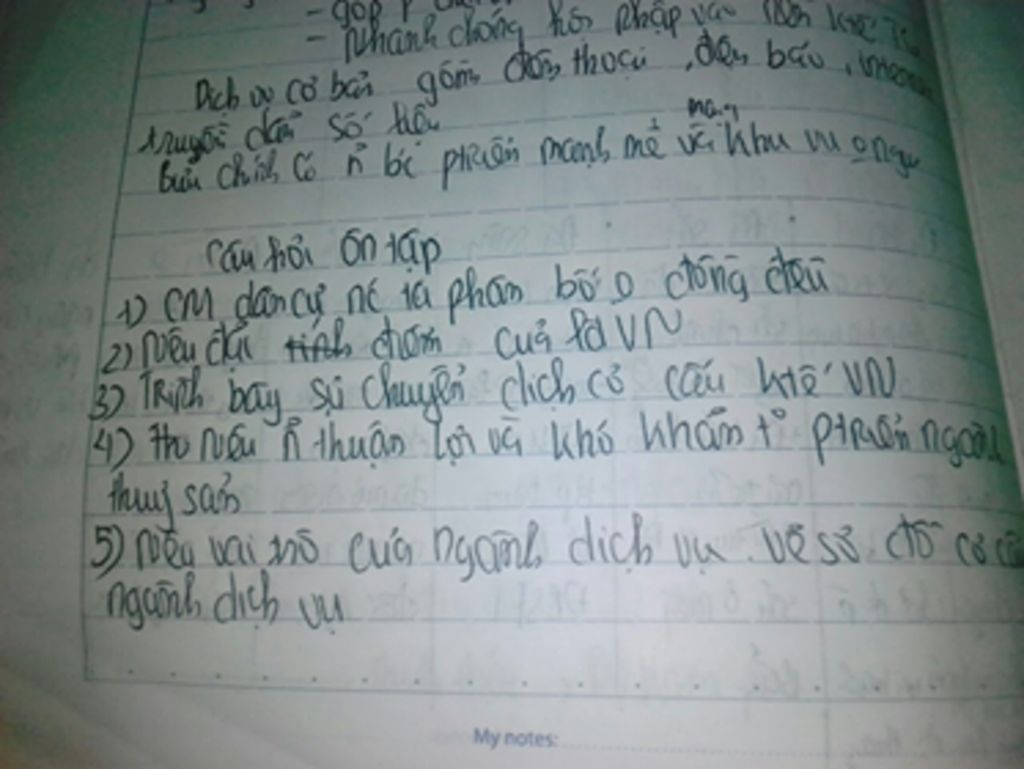 - góp p
- Nhanh chóng hòa nhập vào nền ktế
Dịch vụ cơ bản gồm điện thoại, điện báo, internet
truyền dẫn số liệu
mang
bưu chính có n bc ptriển mạnh mẽ và khu vu
Câu hỏi ôn tập
1) CM dân cư nc ta phân bố o đồng đều
2) Nêu đặc điểm của lđ VN
3) Trình bày sự chuyển dịch cơ cấu ktế VN
4) Hv nêu n thuận lợi và khó khăn tr ptriển ngành
thuỷ sản
5) Nêu vai trò của ngành dịch vụ. vẽ sơ đồ cơ cấ
ngành dịch vụ
My notes: